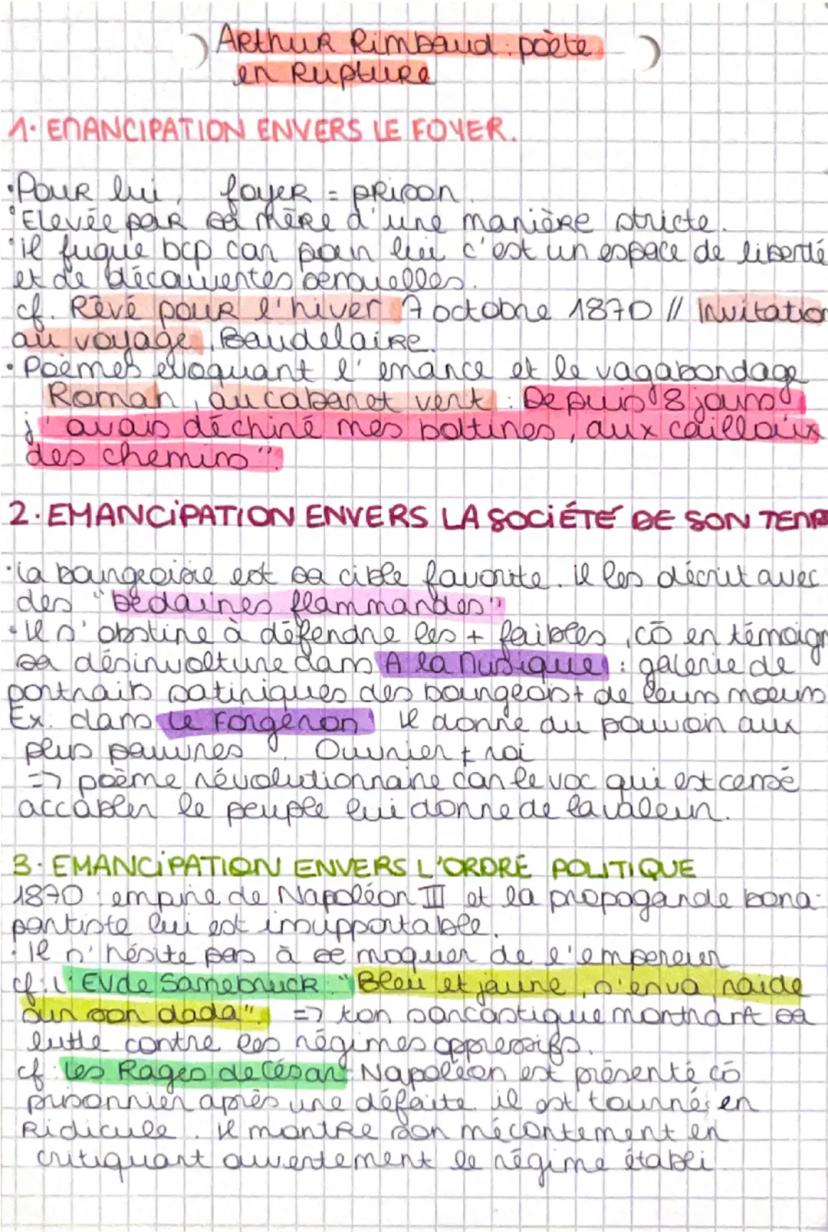 Arthur Rimbaud : poète
en Rupture
1. EMANCIPATION ENVERS LE FOYER.
• Pour lui, foyer = prison.
• Elevée par sa mère d'une manière stricte.
• il fugue bcp car pour lui c'est un espace de liberté
et de découvertes sensuelles.
cf. Rêvé pour l'hiver 7 octobre 1870 // Invitation
au voyage, Baudelaire.
• Poèmes évoquant l'errance et le vagabondage
Roman, au cabaret vert : "Depuis 8 jours
j'avais déchiré mes bottines, aux cailloux
des chemins".
2. EMANCIPATION ENVERS LA SOCIÉTÉ DE SON TEMP
• la bourgeoisie est sa cible favorite. il les décrit avec
des "bedaines flammandes"
• il s'obstine à défendre les + faibles, cō en témoign
sa désinvolture dans A la Musique : galerie de
portraits satiriques des bourgeois + de leurs moeurs
Ex. dans Le Forgeron il donne du pouvoir aux
plus pauvres. Ouvrier ≠ roi
=> poème révolutionnaire car le voc qui est censé
accabler le peuple lui donne de la valeur.
3. EMANCIPATION ENVERS L'ORDRE POLITIQUE
1870 : empire de Napoléon III et la propagande bona-
partiste lui est insupportable.
• il n'hésite pas à se moquer de l'empereur
cf. L'EV de Sarrebruck : "Bleu et jaune, s'en va, raide
sur son dada". => ton sarcastique montrant sa
lutte contre les régimes oppressifs.
cf. Les Rages de César Napoléon est présenté cō
prisonnier après une défaite il est tourné en
Ridicule. il montre son mécontement en
critiquant ouvertement le régime établi